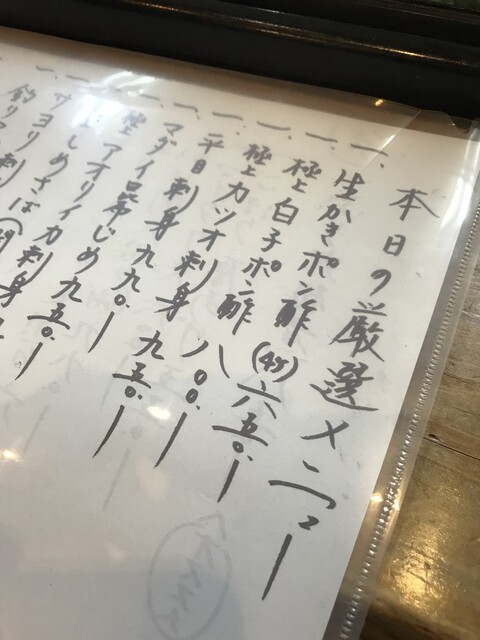 本日の厳選メニュー
一、生かきポン酢(4ヶ)六五〇.ー
一、極上白子ポン酢 八〇〇.ー
一、極上カツオ刺身 九五〇.ー
一、平目刺身 九九〇.ー
一、マダイ昆布じめ 九五〇.ー
アオリイカ刺身
しめさば
サヨリ刺
釣り